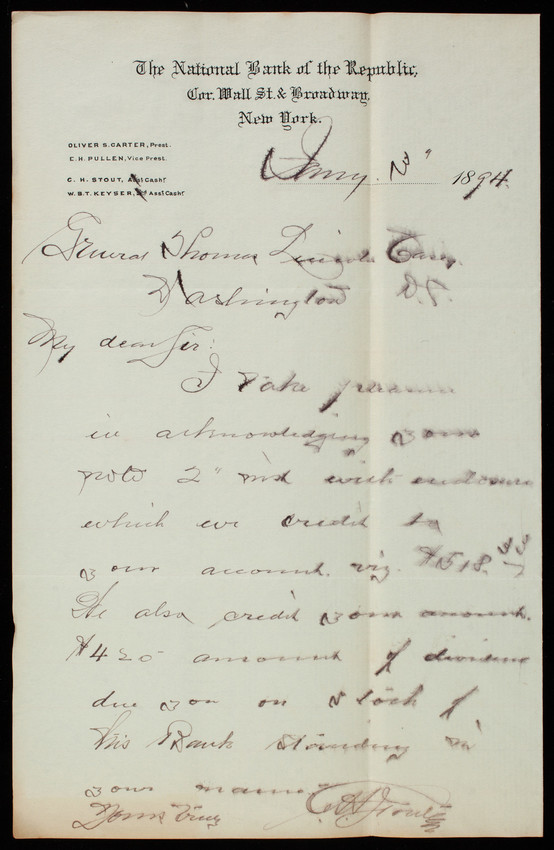 The National Bank of the Republic,
Cor. Wall St. & Broadway,
New York.
OLIVER S. CARTER, Prest.
E. H. PULLEN, Vice Prest.
C. H. STOUT, Asst Cashr
W. B. T. KEYSER, 2nd Asst Cashr
Jany. 1894.
General Thomas Lincoln Casey.
Washington D.C.
My dear Sir:
I take pleasure
in acknowledging your
2" inst with enclosure
which we credit to
your account. viz. $518.
We also credit your account.
$420 amount of dividend
due you on stock of
this Bank standing in
your name
Yours truly C H Stout